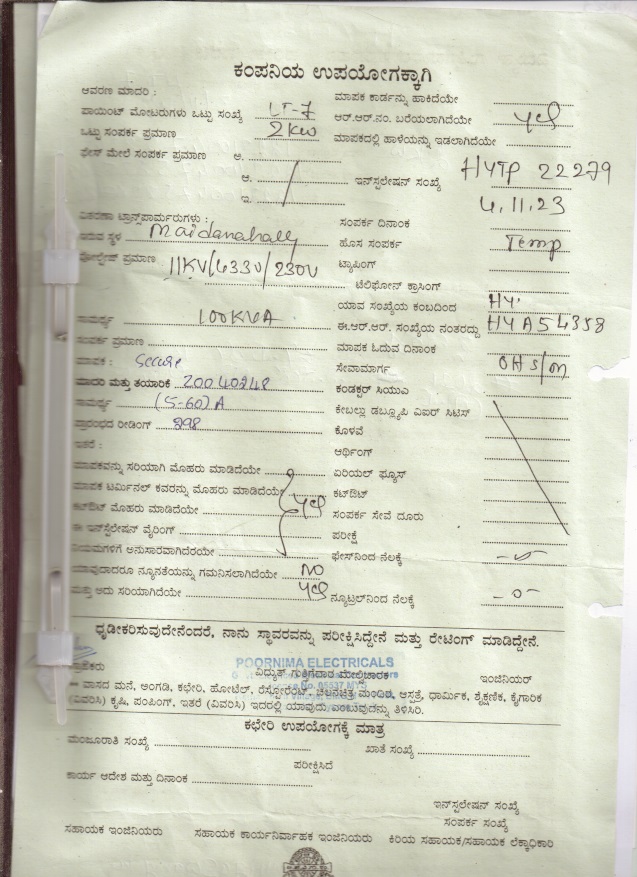 ಕಂಪನಿಯ ಉಪಯೋಗಕ್ಕಾಗಿ
ಆವರಣ ಮಾದರಿ :
ಮಾಪಕ ಕಾರ್ಡನ್ನು ಹಾಕಿದೆಯೇ
ಪಾಯಿಂಟ್ ಮೋಟರುಗಳು ಒಟ್ಟು ಸಂಖ್ಯೆ LT-7
ಆರ್.ಆರ್.ನಂ. ಬರೆಯಲಾಗಿದೆಯೇ yes
ಒಟ್ಟು ಸಂಪರ್ಕ ಪ್ರಮಾಣ 2KW
ಮಾಪಕದಲ್ಲಿ ಹಾಳೆಯನ್ನು ಇಡಲಾಗಿದೆಯೇ
ಫೇಸ್ ಮೇಲೆ ಸಂಪರ್ಕ ಪ್ರಮಾಣ ಅ.
ಆ.
ಇನ್ಸ್ಟಲೇಷನ್ ಸಂಖ್ಯೆ HYTP 22279
ಇ.
4.11.23
ವಿತರಣಾ ಟ್ರಾನ್ಸ್‌ಫಾರ್ಮರುಗಳು :
ಸಂಪರ್ಕ ದಿನಾಂಕ
ಇರುವ ಸ್ಥಳ Maidanahally
ಹೊಸ ಸಂಪರ್ಕ Temp
ವೋಲ್ಟೇಜ್ ಪ್ರಮಾಣ 11KV/433V/230V
ಟ್ಯಾಪಿಂಗ್
ಟೆಲಿಫೋನ್ ಕ್ರಾಸಿಂಗ್
ಯಾವ ಸಂಖ್ಯೆಯ ಕಂಬದಿಂದ HY
ಸಾಮರ್ಥ್ಯ 100KVA
ಈ.ಆರ್.ಆರ್. ಸಂಖ್ಯೆಯ ನಂತರದ್ದು HYA54358
ಸಂಪರ್ಕ ಪ್ರಮಾಣ
ಮಾಪಕ ಓದುವ ದಿನಾಂಕ
ಮಾಪಕ : Secure
ಸೇವಾಮಾರ್ಗ OH S/m
ಮಾರಾ ಮತ್ತು ತಯಾರಿಕೆ 20040248
ಕಂಡಕ್ಟರ್ ಸಿಯುಎ
ಸಾಮರ್ಥ್ಯ (5-60)A
ಕೇಬಲ್ಲು ಡಬ್ಲ್ಯೂಪಿ ವಿಐರ್ ಸಿಟಿಸ್
ಪ್ರಾರಂಭದ ರೀಡಿಂಗ್ 298
ಕೊಳವೆ
ಇತರೆ :
ಆರ್ಥಿಂಗ್
ಮಾಪಕವನ್ನು ಸರಿಯಾಗಿ ಮೊಹರು ಮಾಡಿದೆಯೇ
ಏರಿಯಲ್ ಫ್ಯೂಸ್
ಮಾಪಕ ಟರ್ಮಿನಲ್ ಕವರನ್ನು ಮೊಹರು ಮಾಡಿದೆಯೇ
ಕಟ್‌ಔಟ್
ಕಟ್‌ಔಟ್ ಮೊಹರು ಮಾಡಿದೆಯೇ yes
ಸಂಪರ್ಕ ಸೇವೆ ದೂರು
ಈ ಇನ್ಸ್ಟಲೇಷನ್ ವೈರಿಂಗ್
ಪರೀಕ್ಷೆ
ನಿಯಮಗಳಿಗೆ ಅನುಸಾರವಾಗಿದೆರಯೇ
ಫೇಸ್‌ನಿಂದ ನೆಲಕ್ಕೆ
ಯಾವುದಾದರೂ ನ್ಯೂನತೆಯನ್ನು ಗಮನಿಸಲಾಗಿದೆಯೇ NO
ಮತ್ತು ಅದು ಸರಿಯಾಗಿದೆಯೇ yes
ನ್ಯೂಟ್ರಲ್‌ನಿಂದ ನೆಲಕ್ಕೆ -0-
ಧೃಡೀಕರಿಸುವುದೇನೆಂದರೆ, ನಾನು ಸ್ಥಾವರವನ್ನು ಪರೀಕ್ಷಿಸಿದ್ದೇನೆ ಮತ್ತು ರೇಟಿಂಗ್ ಮಾಡಿದ್ದೇನೆ.
POORNIMA ELECTRICALS
ಗ್ರಾಹಕರು
ವಿದ್ಯುತ್ ಗುತ್ತಿಗೆದಾರ ಮೇಲ್ವಿಚಾರಕ
ಇಂಜಿನಿಯರ್
ಈ ವಾಸದ ಮನೆ, ಅಂಗಡಿ, ಕಛೇರಿ, ಹೋಟೆಲ್, ರೆಸ್ಟೋರೆಂಟ್, ಚಲನಚಿತ್ರ ಮಂದಿರ, ಆಸ್ಪತ್ರೆ, ಧಾರ್ಮಿಕ, ಶೈಕ್ಷಣಿಕ, ಕೈಗಾರಿಕೆ
(ವಿವರಿಸಿ) ಕೃಷಿ, ಪಂಪಿಂಗ್, ಇತರೆ (ವಿವರಿಸಿ) ಇದರಲ್ಲಿ ಯಾವುದು ಎಂಬುವುದನ್ನು ತಿಳಿಸಿರಿ.
ಕಛೇರಿ ಉಪಯೋಗಕ್ಕೆ ಮಾತ್ರ
ಮಂಜೂರಾತಿ ಸಂಖ್ಯೆ
ಖಾತೆ ಸಂಖ್ಯೆ
ಪರೀಕ್ಷಿಸಿದೆ
ಕಾರ್ಯ ಆದೇಶ ಮತ್ತು ದಿನಾಂಕ
ಇನ್ಸ್ಟಲೇಷನ್ ಸಂಖ್ಯೆ
ಸಂಪರ್ಕ ಸಂಖ್ಯೆ
ಸಹಾಯಕ ಇಂಜಿನಿಯರು ಸಹಾಯಕ ಕಾರ್ಯನಿರ್ವಾಹಕ ಇಂಜಿನಿಯರು ಕಿರಿಯ ಸಹಾಯಕ/ಸಹಾಯಕ ಲೆಕ್ಕಾಧಿಕಾರಿ